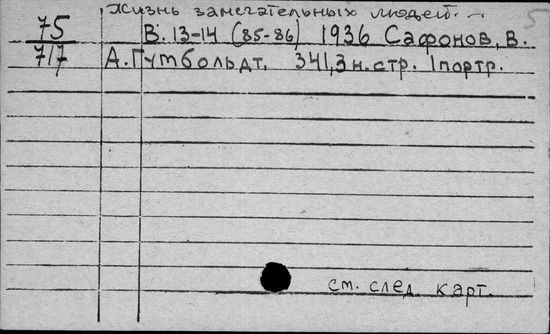 Жизнь замечательных людей.
5
75
В. 13-14 (85-86) 1936 Сафонов, В.
717
А. Гумбольдт. 341,3 н. стр. 1 портр.
см. след. карт.